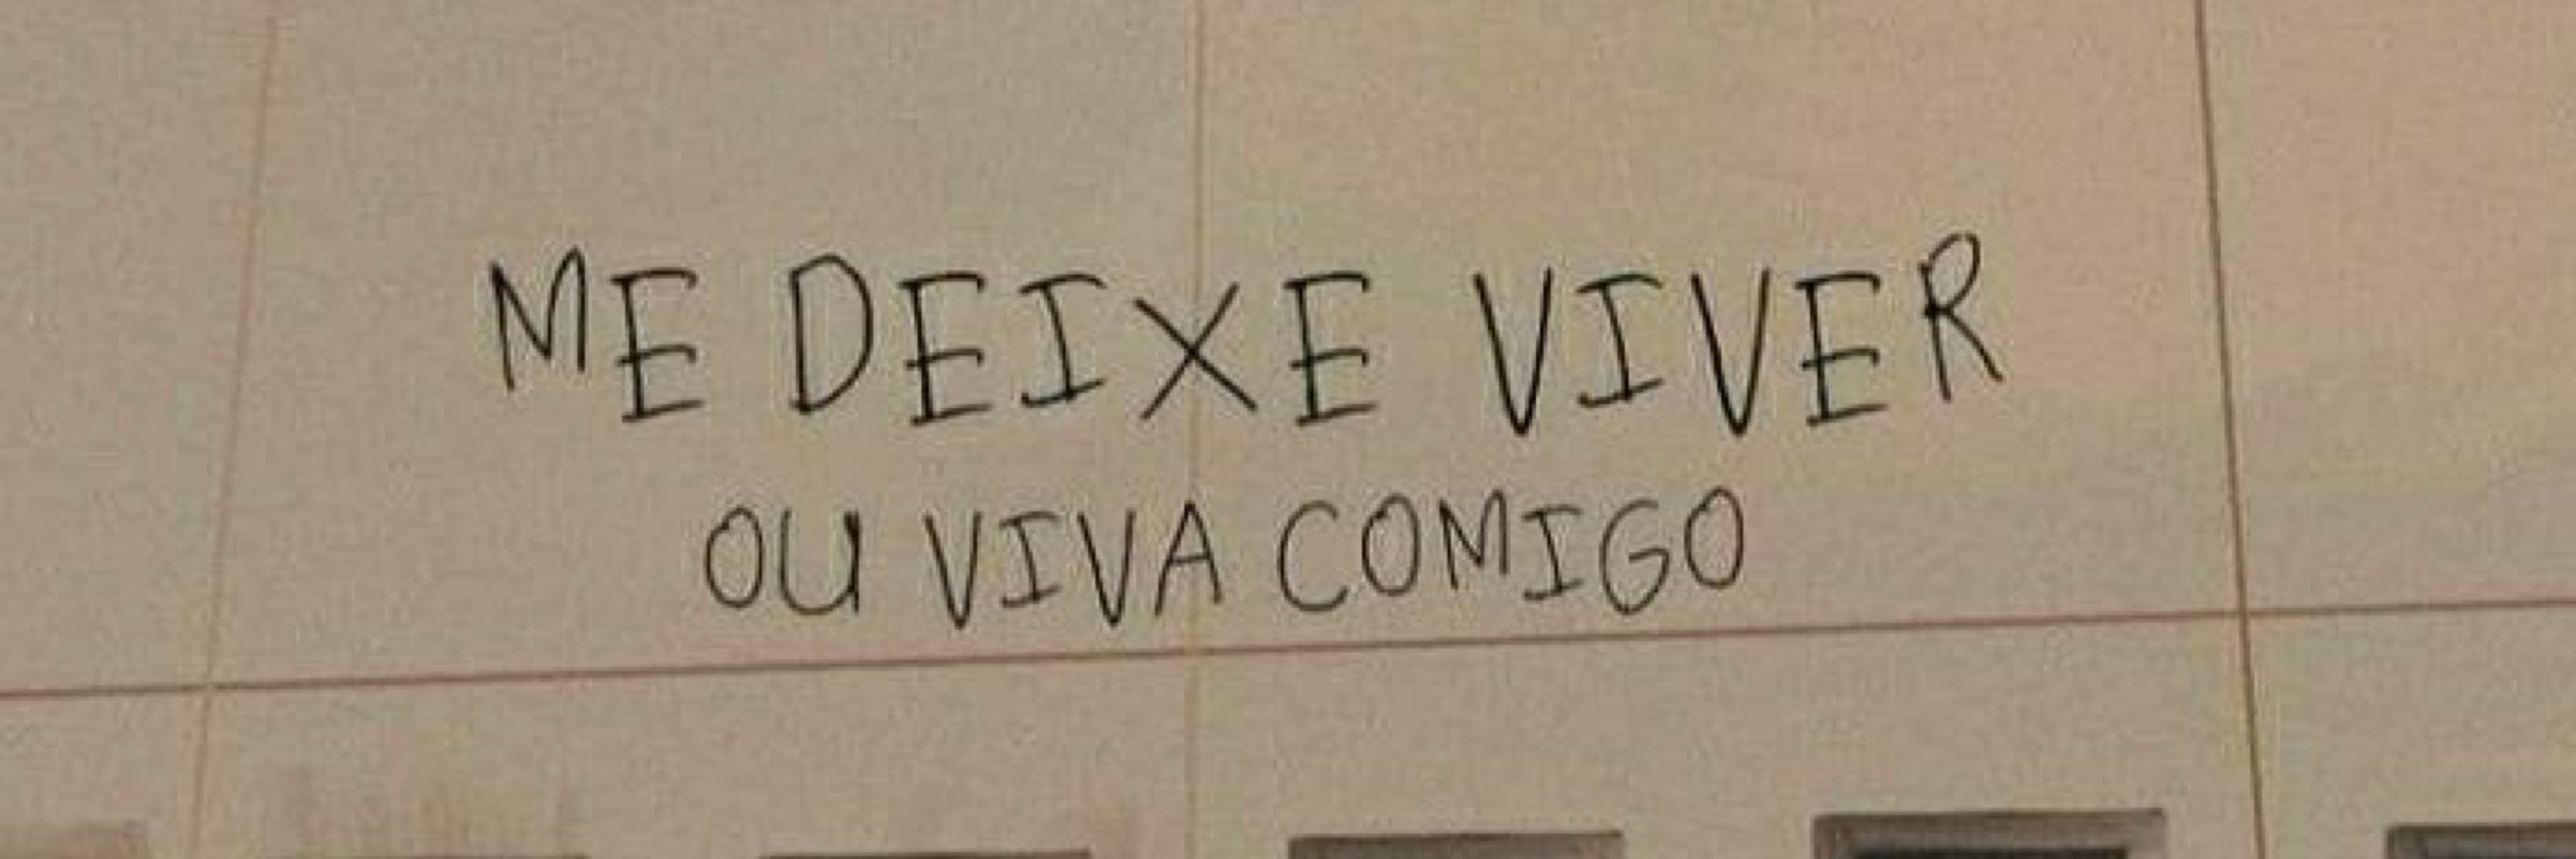 ME DEIXE VIVER
OU VIVA COMIGO